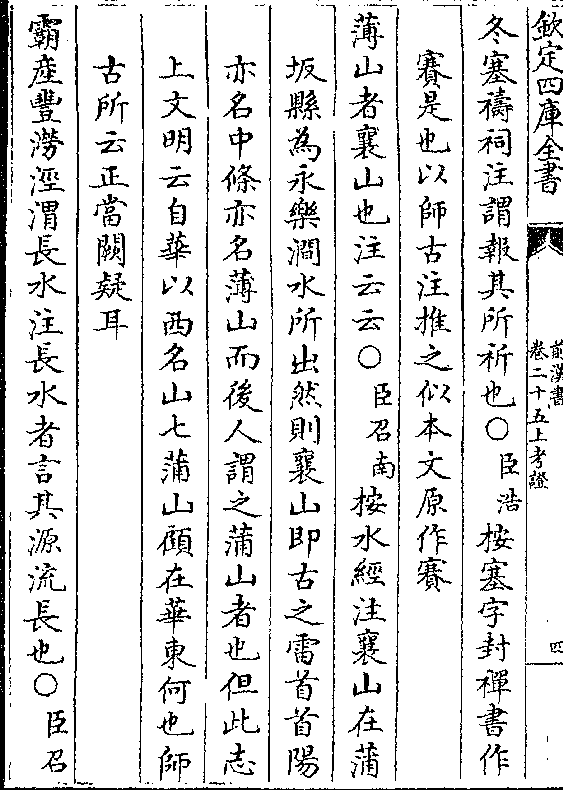 欽定四庫全書
前漢書
卷二十五上考證
四
冬塞禱祠注謂報其所祈也○臣浩按塞字封禪書作
賽是也以師古注推之似本文原作賽
薄山者襄山也注云云○臣召南按水經注襄山在蒲
坂縣為永樂澗水所出然則襄山即古之雷首首陽
亦名中條亦名薄山而後人謂之蒲山者也但此志
上文明云自華以西名山七蒲山顧在華東何也師
古所云正當闕疑耳
霸產豐澇涇渭長水注長水者言其源流長也○臣召